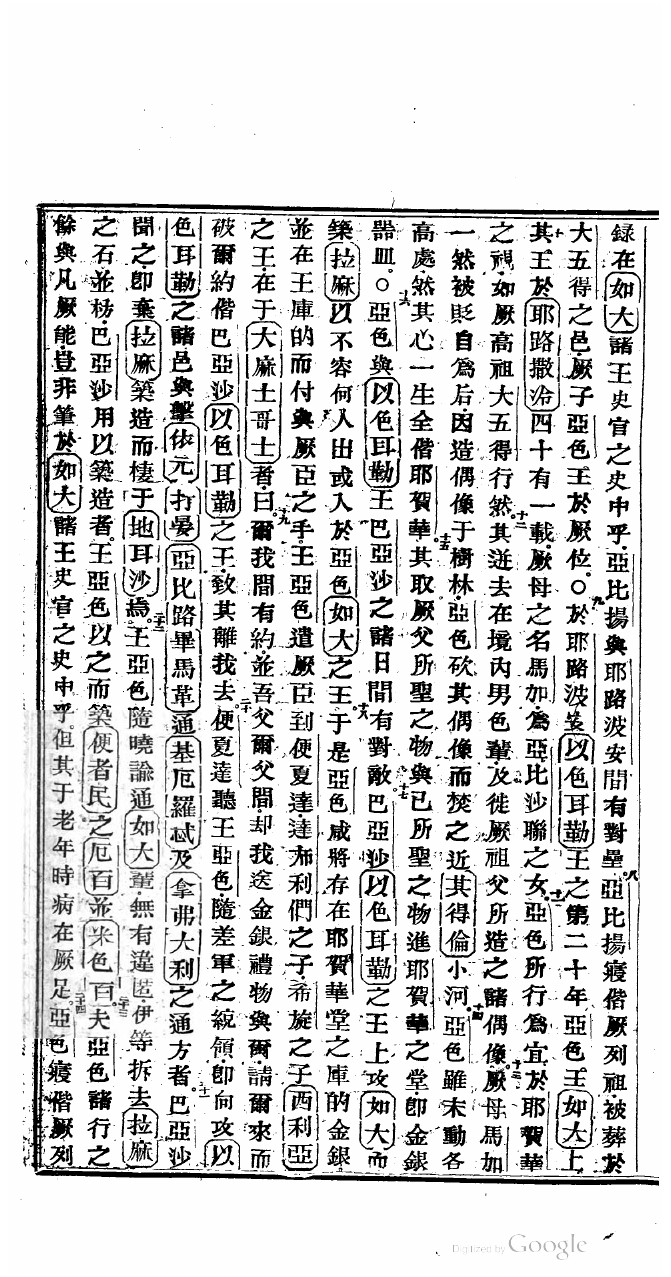 録在如大諸王史官之史中乎亞比揚與耶路波安間有對壘八亞比揚寢偕厥列祖被葬於
大五得之邑厥子亞色王於厥位○九於耶路波安以色耳勒王之第二十年亞色王如大上
十其王於耶路撒冷四十有一載厥母之名馬加爲亞比沙聯之女十一亞色所行爲宜於耶賀華
之視如厥高祖大五得行然十二其逆去在境內男色輩及徙厥祖父所造之諸偶像十三厥母馬加
一然被貶自爲后因造偶像于樹林亞色砍其偶像而焚之近其得倫小河十四亞色雖未動各
高處然其心一生全偕耶賀華十五其取厥父所聖之物與已所聖之物進耶賀華之堂卽金銀
器皿○十六亞色與以色耳勒王巴亞沙之諸日間有對敵十七巴亞沙以色耳勒之王上攻如大而
築拉麻以不容何人出或入於亞色如大之王十八于是亞色咸將存在耶賀華堂之庫的金銀
並在王庫的而付與厥臣之手王亞色遣厥臣到便夏達達布利們之子希旋之子西利亞
之王在于大麻士哥士者曰十九爾我間有約並吾父爾父間却我送金銀禮物與爾請爾來而
破爾約偕巴亞沙以色耳勒之王致其離我去二十便夏達聽王亞色隨差軍之統領卽向攻以
色耳勒之諸邑與擊依元打晏亞比路畢馬革通基厄羅忒及拿弗大利之通方者二十一巴亞沙
聞之卽棄拉麻築造而棲于地耳沙焉二十二王亞色隨曉諭通如大輩無有違匿伊等拆去拉麻
之石並枋巴亞沙用以築造者王亞色以之而築便者民之厄百並米色百二十三夫亞色諸行之
餘與凡厥能豈非筆於如大諸王史官之史中乎但其于老年時病在厥足二十四亞色寢偕厥列
Digitized by Google